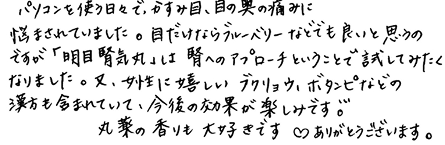 パソコンを使う日々で、かすみ目、目の奥の痛みに
悩まされていました。目だけならブルーベリーなどでも良いと思うの
ですが「明目腎気丸」は腎へのアプローチということで試してみたく
なりました。又、女性に嬉しいブクリョウ、ボタンピなどの
漢方も含まれていて、今後の効果が楽しみです。"
丸薬の香りも大好きです♡ありがとうございます。